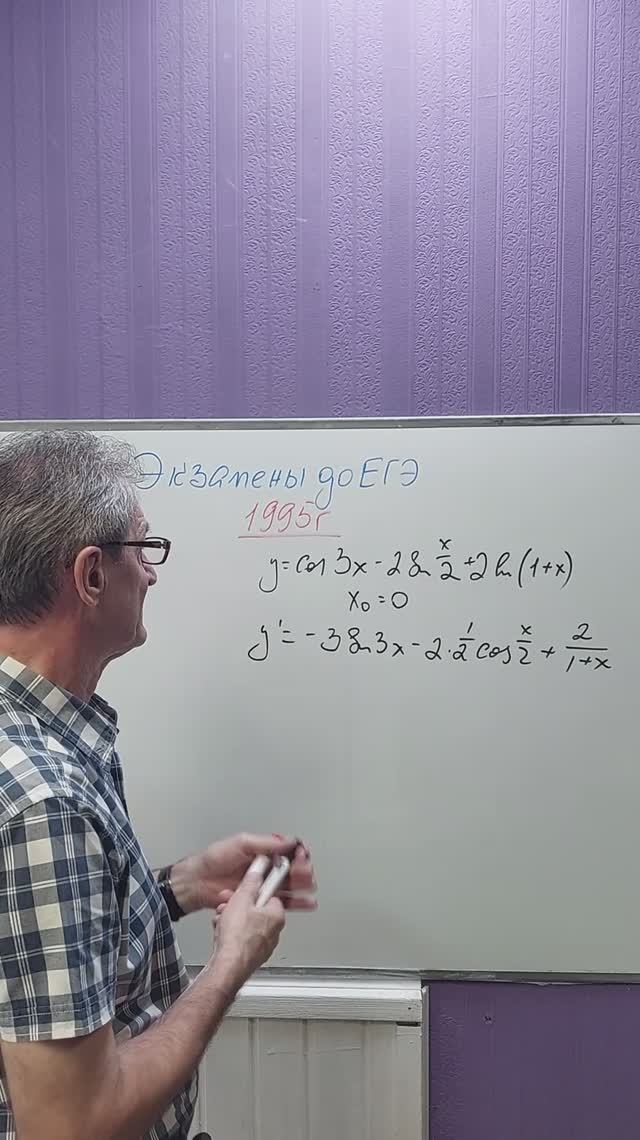 Экзамены до ЕГЭ
1995г
y = cos 3x - 2 sin x/2 + 2 ln (1+x)
x₀ = 0
y' = -3 sin 3x - 2 · 1/2 cos x/2 + 2/(1+x)